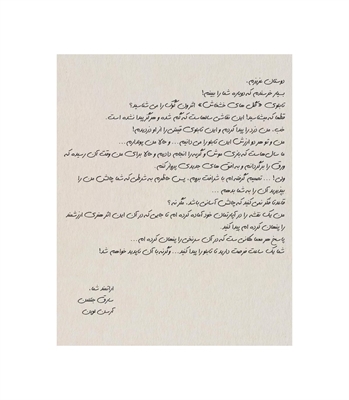 دوستان عزیزم.
بسیار خرسندم که دوباره شما را میبینم!
تابلوی «گل های خشخاش» اثر ون گوگ را می شناسید؟
قطعا که میشناسید! این نقاشی سالهاست که گم شده و هرگز پیدا نشده است.
خب، من دزد را پیدا کردم و این تابلوی قیمتی را از او دزدیدم!
من و تو هر دو ارزش این تابلو را می دانیم... و حالا من پولدارم...
ما سال هاست که بازی موش و گربه را انجام دادیم و حالا برای من وقت آن رسیده که
ورق را برگردانم و به افق های جدیدی پرواز کنم.
ولی! ... تصمیم گرفته ام با شرافت بروم. پس حاضرم به شرطی که شما چالش من را
بپذیرید آن را به شما بدهم ...
قاعدتا فکر نمی کنید که چالش آسانی باشد. مگر نه؟
من یک نقشه را در آپارتمان خود آماده کرده ام تا جایی که در آن این اثر هنری ارزشمند
را پنهان کرده ام پیدا کنید.
پاسخ هر معما مکانی ست که در آن سرنخی را پنهان کرده ام ...
شما یک ساعت فرصت دارید تا تابلو را پیدا کنید... وگرنه با آن ناپدید خواهم شد!
ارادتمند شما،
سارق جنتلمن
آرسن لوپن